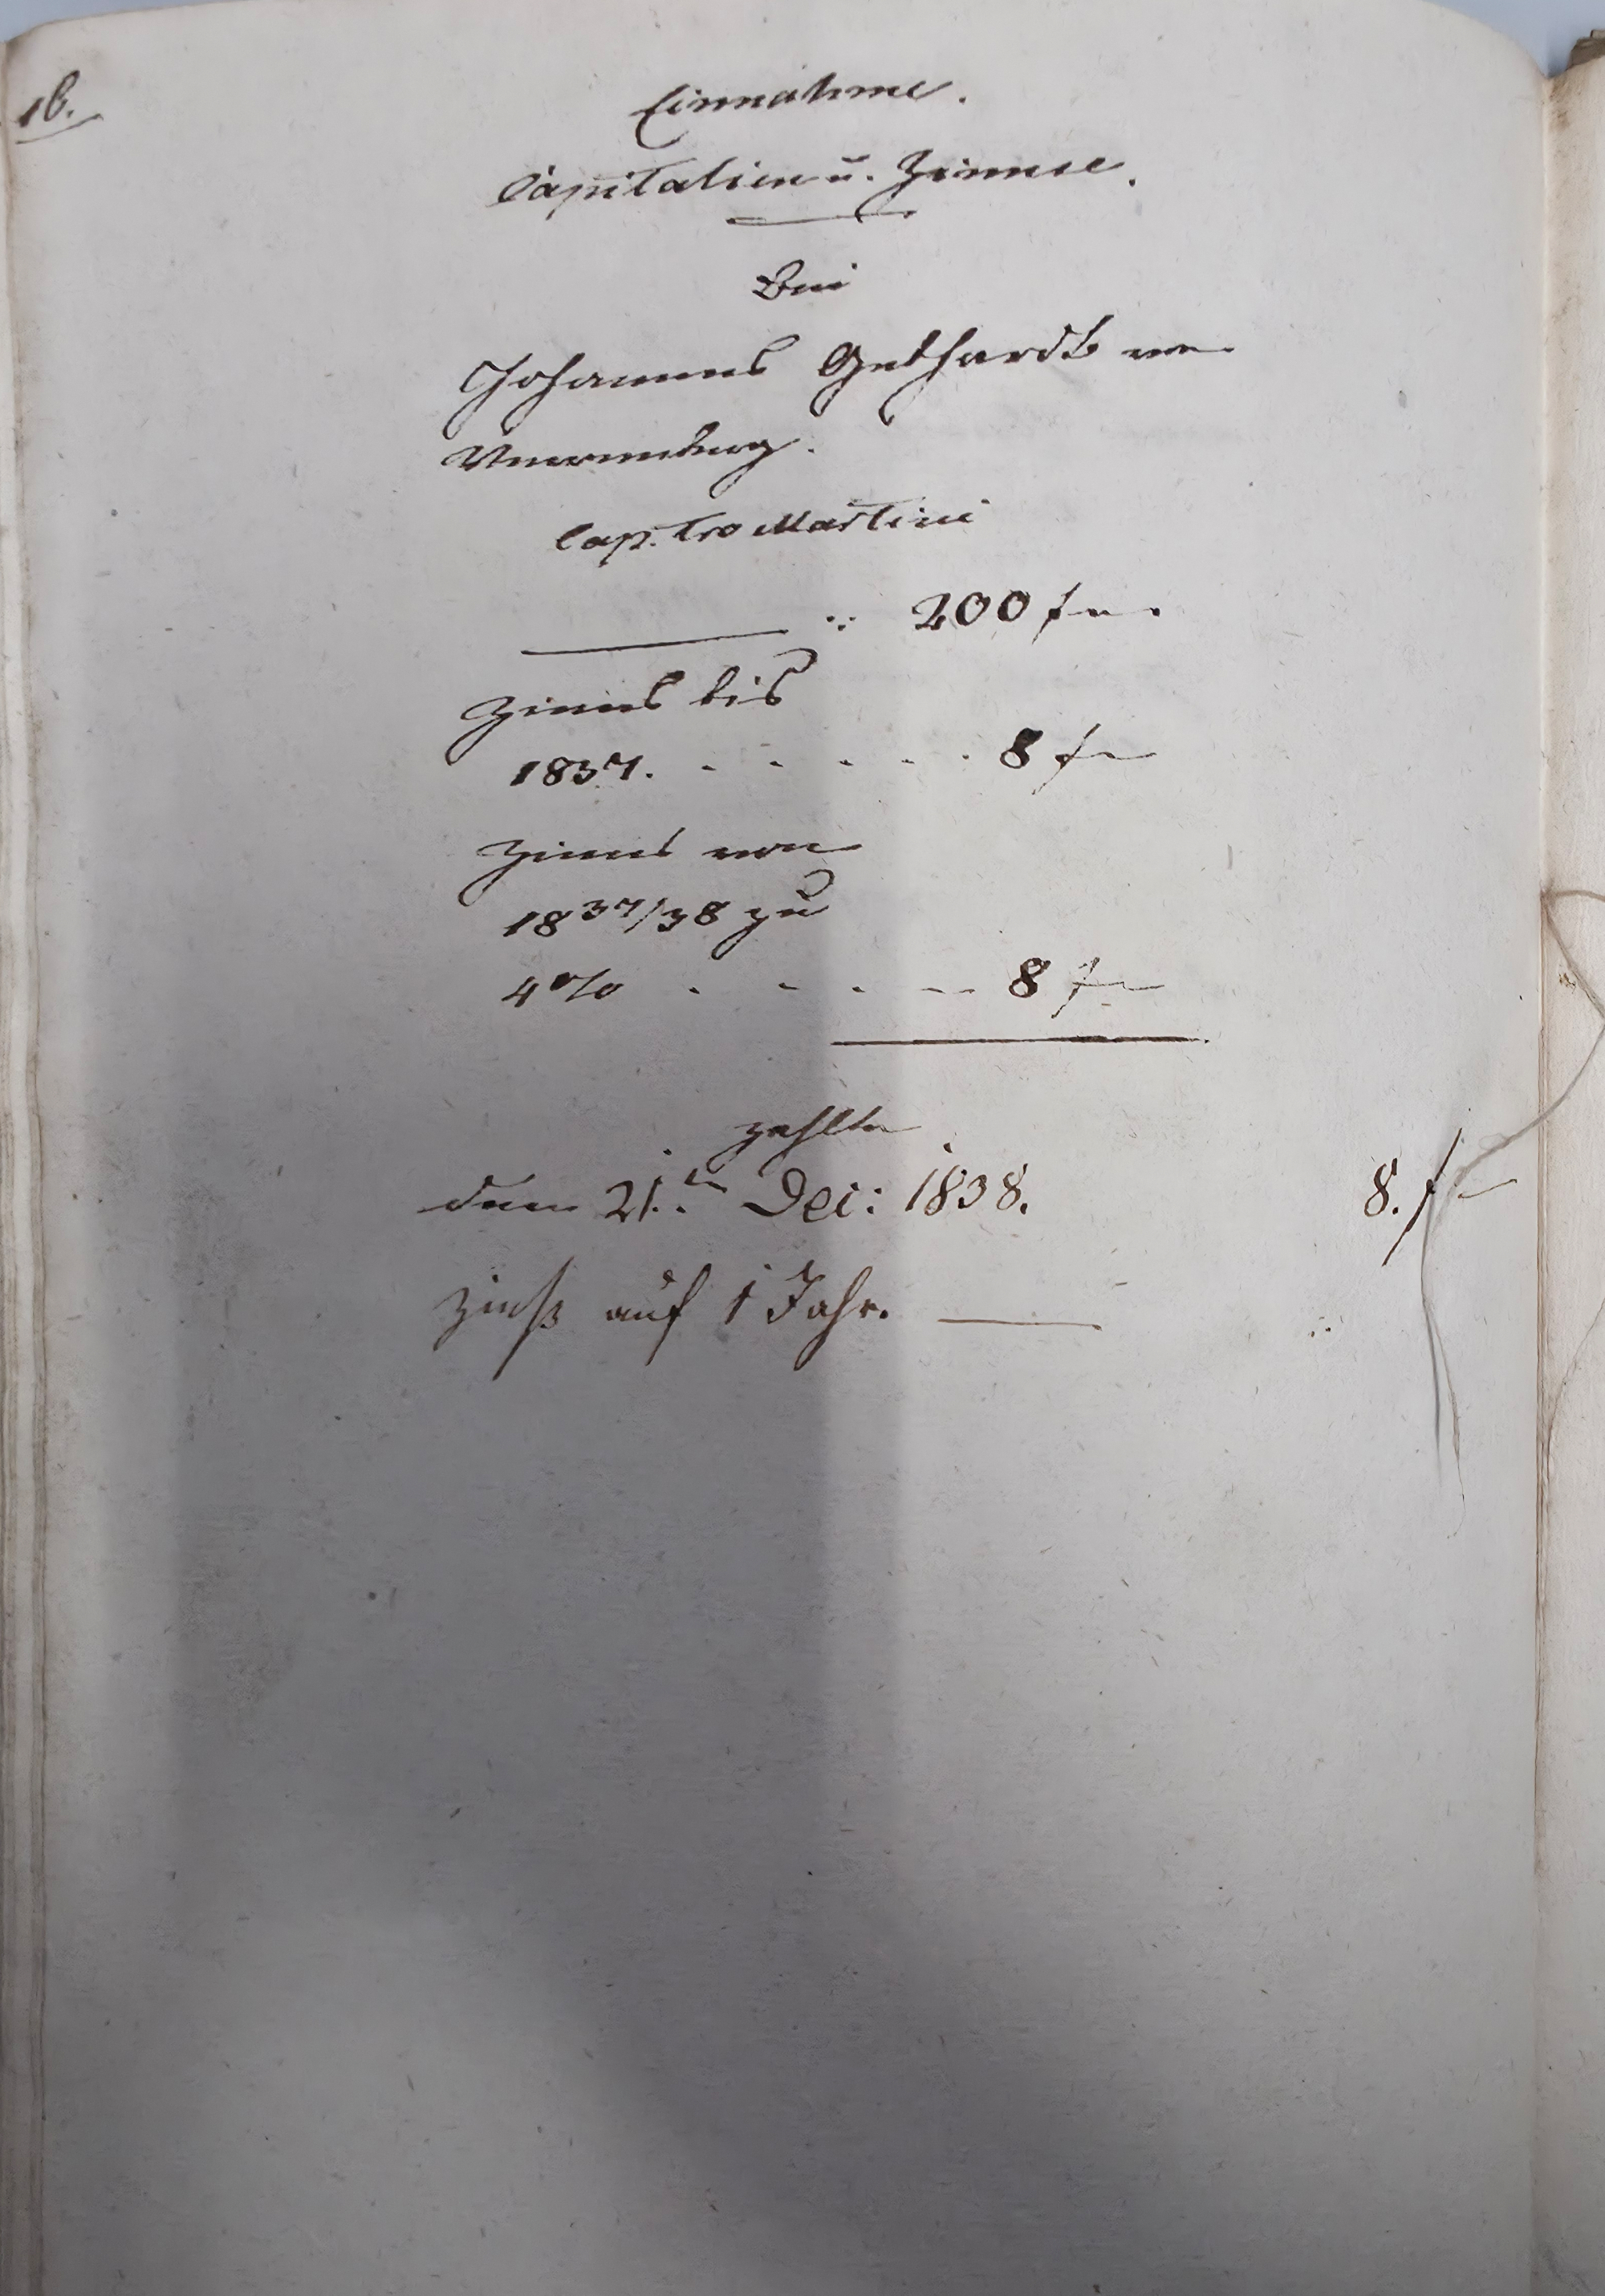 16.
Einnahme.
Capitalien u. Zinnse.
Bei
Johannes Gebhardt von
Cap. pro Martini
200 f
Zinns bis
1837. . . . . . 8 f
Zinns von
1837/38 zu
4% . . . . 8 f
zahlte
den 21.ten Dec: 1838. 8. f
Zinß auf 1 Jahr.